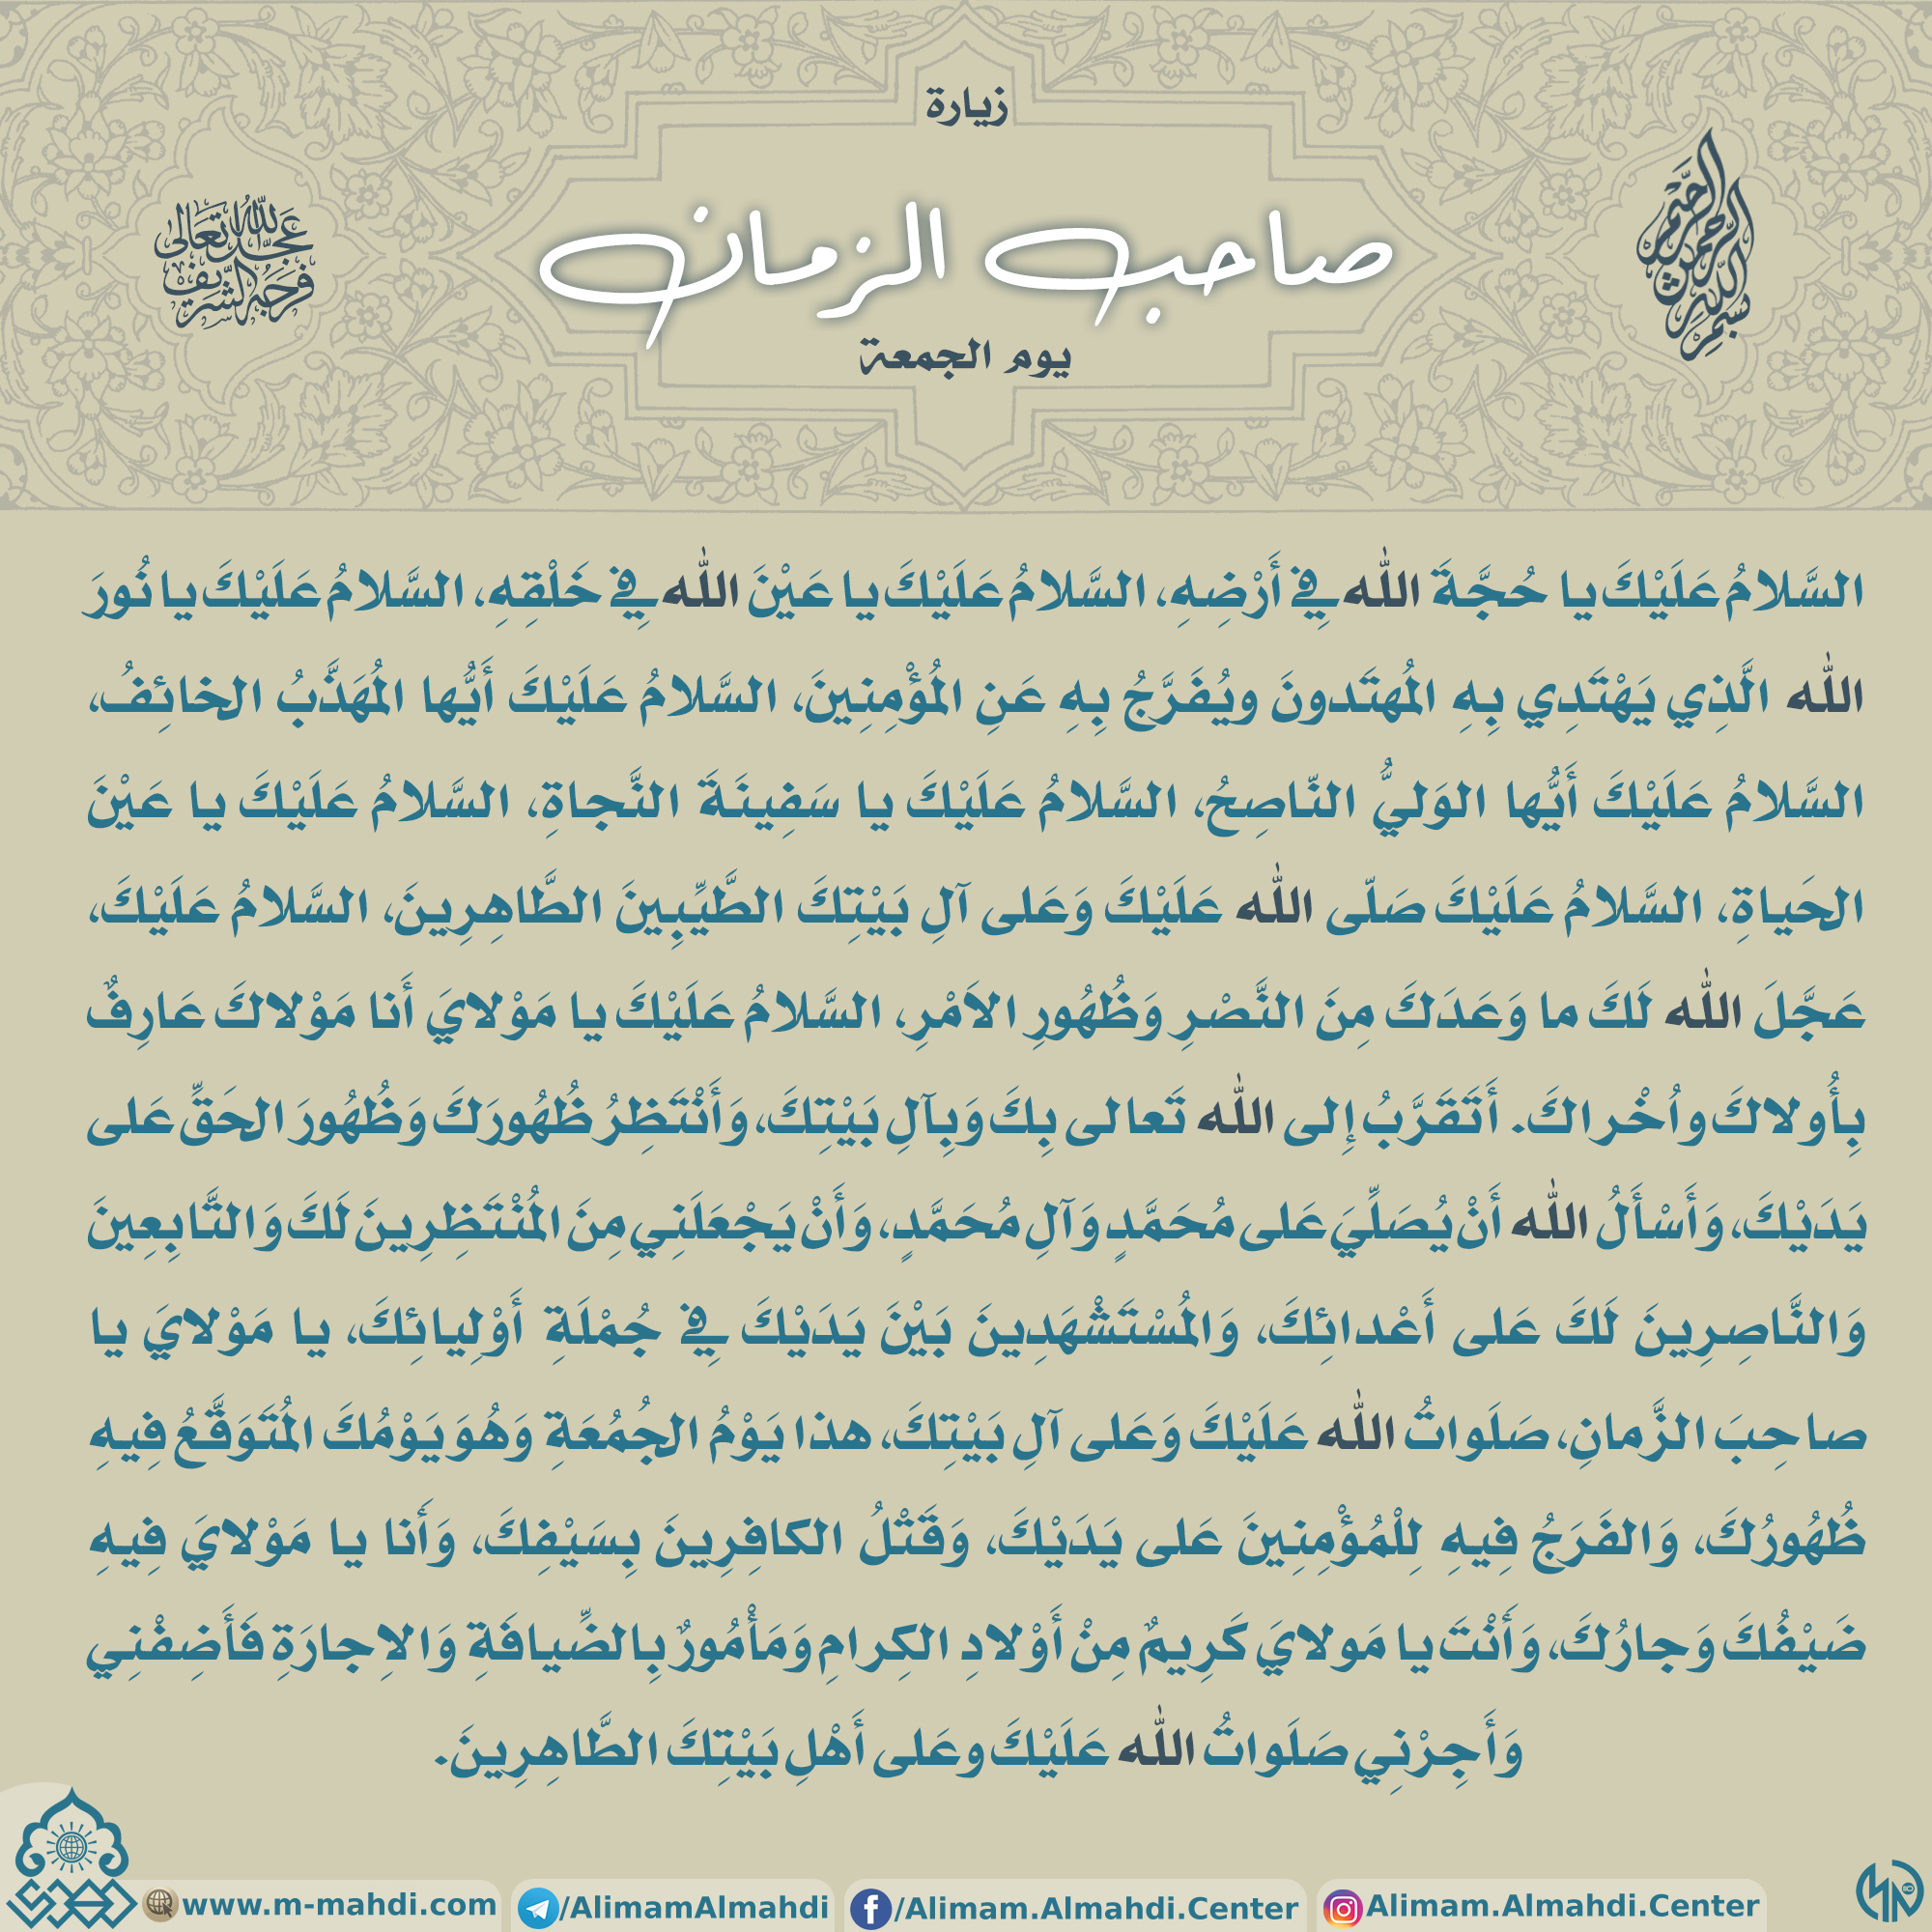 زيارة
بسم الله الرحمن الرحيم
صاحب الزمان
عَجَّلَ اللهُ تَعَالى
فَرَجَهُ الشَّرِيف
يوم الجمعة
السَّلامُ عَلَيْكَ يا حُجَّةَ الله فِي أَرْضِهِ، السَّلامُ عَلَيْكَ يا عَيْنَ الله فِي خَلْقِهِ، السَّلامُ عَلَيْكَ يا نُورَ
الله الَّذِي يَهْتَدِي بِهِ المُهتَدونَ ويُفَرَّجُ بِهِ عَنِ المُؤْمِنِينَ، السَّلامُ عَلَيْكَ أَيُّها المُهَذَّبُ الخائِفُ،
السَّلامُ عَلَيْكَ أَيُّها الوَليُّ النّاصِحُ، السَّلامُ عَلَيْكَ يا سَفِينَةَ النَّجاةِ، السَّلامُ عَلَيْكَ يا عَيْنَ
الحَياةِ، السَّلامُ عَلَيْكَ صَلّى الله عَلَيْكَ وَعَلى آلِ بَيْتِكَ الطَّيِّبِينَ الطَّاهِرِينَ، السَّلامُ عَلَيْكَ،
عَجَّلَ الله لَكَ ما وَعَدَكَ مِنَ النَّصْرِ وَظُهُورِ الاَمْرِ، السَّلامُ عَلَيْكَ يا مَوْلايَ أَنا مَوْلاكَ عَارِفٌ
بِأُولاكَ واُخْراكَ. أَتَقَرَّبُ إِلى الله تَعالى بِكَ وَبِآلِ بَيْتِكَ، وَأَنْتَظِرُ ظُهُورَكَ وَظُهُورَ الحَقِّ عَلى
يَدَيْكَ، وَأَسْأَلُ الله أَنْ يُصَلِّيَ عَلى مُحَمَّدٍ وَآلِ مُحَمَّدٍ، وَأَنْ يَجْعَلَنِي مِنَ المُنْتَظِرِينَ لَكَ وَالتَّابِعِينَ
وَالنَّاصِرِينَ لَكَ عَلى أَعْدائِكَ، وَالمُسْتَشْهَدِينَ بَيْنَ يَدَيْكَ فِي جُمْلَةِ أَوْلِيائِكَ، يا مَوْلايَ يا
صاحِبَ الزَّمانِ، صَلَواتُ الله عَلَيْكَ وَعَلى آلِ بَيْتِكَ، هذا يَوْمُ الجُمُعَةِ وَهُوَ يَوْمُكَ المُتَوَقَّعُ فِيهِ
ظُهُورُكَ، وَالفَرَجُ فِيهِ لِلْمُؤْمِنِينَ عَلى يَدَيْكَ، وَقَتْلُ الكافِرِينَ بِسَيْفِكَ، وَأَنا يا مَوْلايَ فِيهِ
ضَيْفُكَ وَجارُكَ، وَأَنْتَ يا مَولايَ كَرِيمٌ مِنْ أَوْلادِ الكِرامِ وَمَأْمُورٌ بِالضِّيافَةِ وَالاِجارَةِ فَأَضِفْنِي
وَأَجِرْنِي صَلَواتُ الله عَلَيْكَ وعَلى أَهْلِ بَيْتِكَ الطَّاهِرِينَ.
www.m-mahdi.com /AlimamAlmahdi /Alimam.Almahdi.Center Alimam.Almahdi.Center